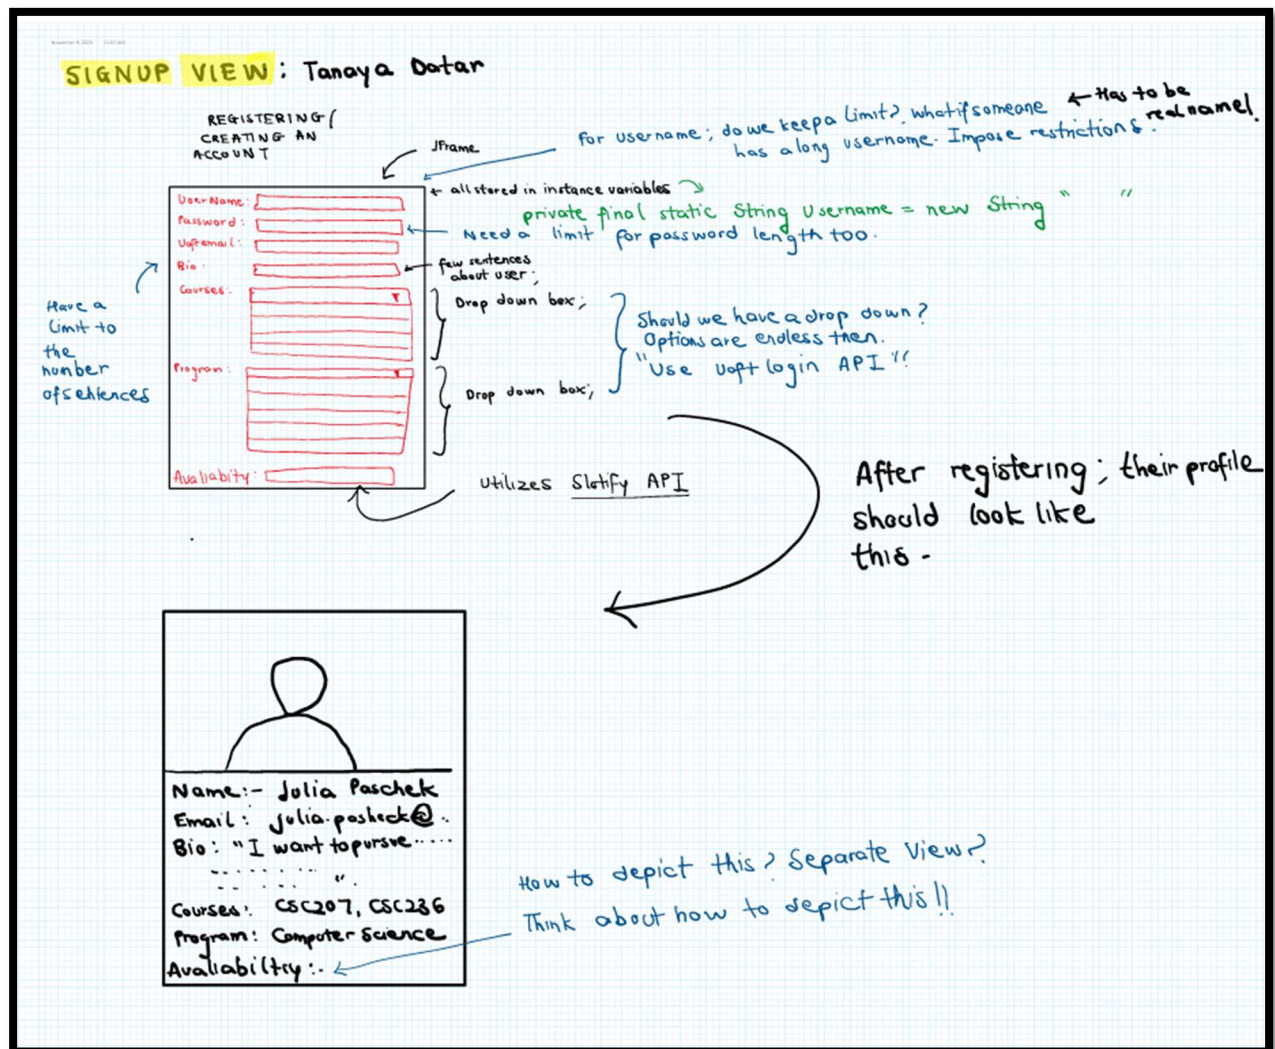 SIGNUP VIEW: Tanaya Datar
REGISTERING/
CREATING AN
ACCOUNT
JFrame
← Has to be
real name!
For username; do we keep a limit? what if someone
has a long username. Impose restrictions.
← all stored in instance variables
private final static String Username = new String " "
Need a limit for password length too.
UserName:
Password:
Uoft email:
Bio:
← few sentences
about user;
Courses:
Drop down box;
Should we have a drop down?
Options are endless then.
"Use Uoft login API"!
Have a
limit to
the
number
of sentences
Program:
Drop down box;
Avaliabity:
Utilizes Slotify API
After registering; their profile
should look like
this -
Name:- Julia Paschek
Email: julia.pasheck@.
Bio: "I want to pursue .....
....... ".
Courses: CSC207, CSC236
Program: Computer Science
Avaliabiltry:-
How to depict this? Separate View?
Think about how to depict this!!